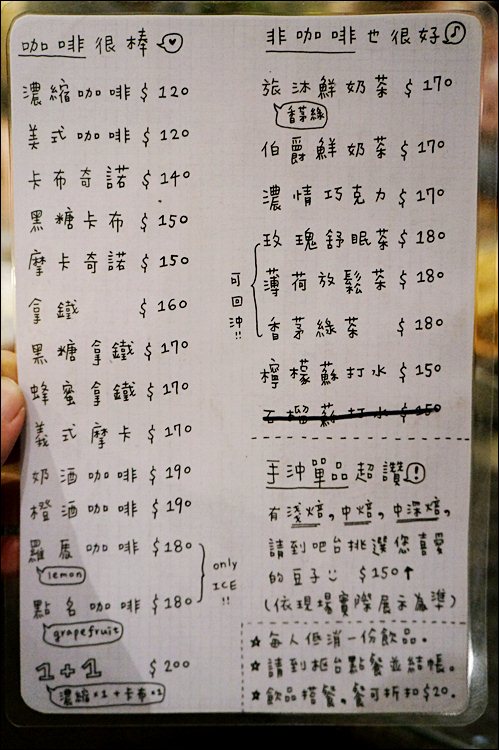 咖啡很棒
濃縮咖啡 $ 120
美式咖啡 $ 120
卡布奇諾 $ 140
黑糖卡布 $ 150
摩卡奇諾 $ 150
拿鐵 $ 160
黑糖拿鐵 $ 170
蜂蜜拿鐵 $ 170
義式摩卡 $ 170
奶酒咖啡 $ 190
橙酒咖啡 $ 190
羅馬咖啡 $ 180
lemon
點名咖啡 $ 180
grapefruit
only
ICE!!
1+1 $ 200
濃縮×1+卡布×1
非咖啡也很好
旅沐鮮奶茶 $ 170
香茅綠
伯爵鮮奶茶 $ 170
濃情巧克力 $ 170
玫瑰舒眠茶 $ 180
薄荷放鬆茶 $ 180
香茅綠茶 $ 180
可回沖!!
檸檬蘇打水 $ 150
石榴蘇打水 $ 150
手沖單品超讚!
有淺焙,中焙,中深焙,
請到吧台挑選您喜愛
的豆子 $150↑
(依現場實際展示為準)
★ 每人低消一份飲品。
★ 請到櫃台點餐並結帳。
★ 飲品搭餐,餐可折扣$20.